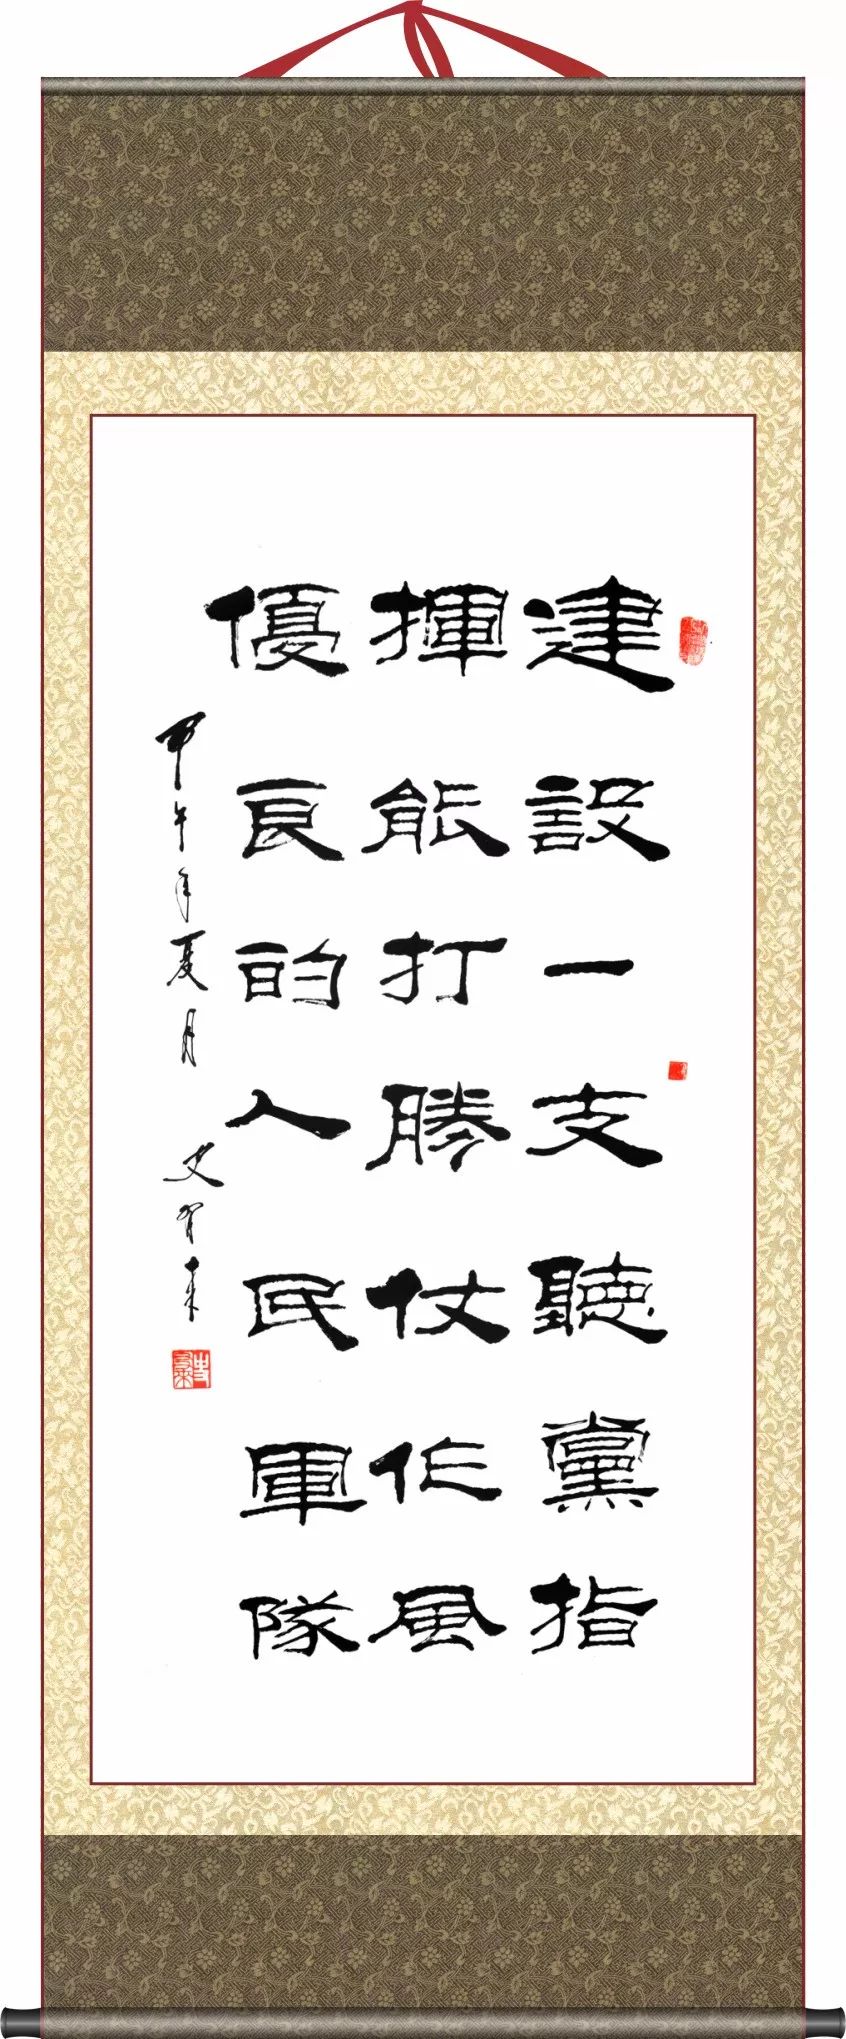 建設一支聽黨指
揮能打勝仗作風
優良的人民軍隊
甲午年夏月